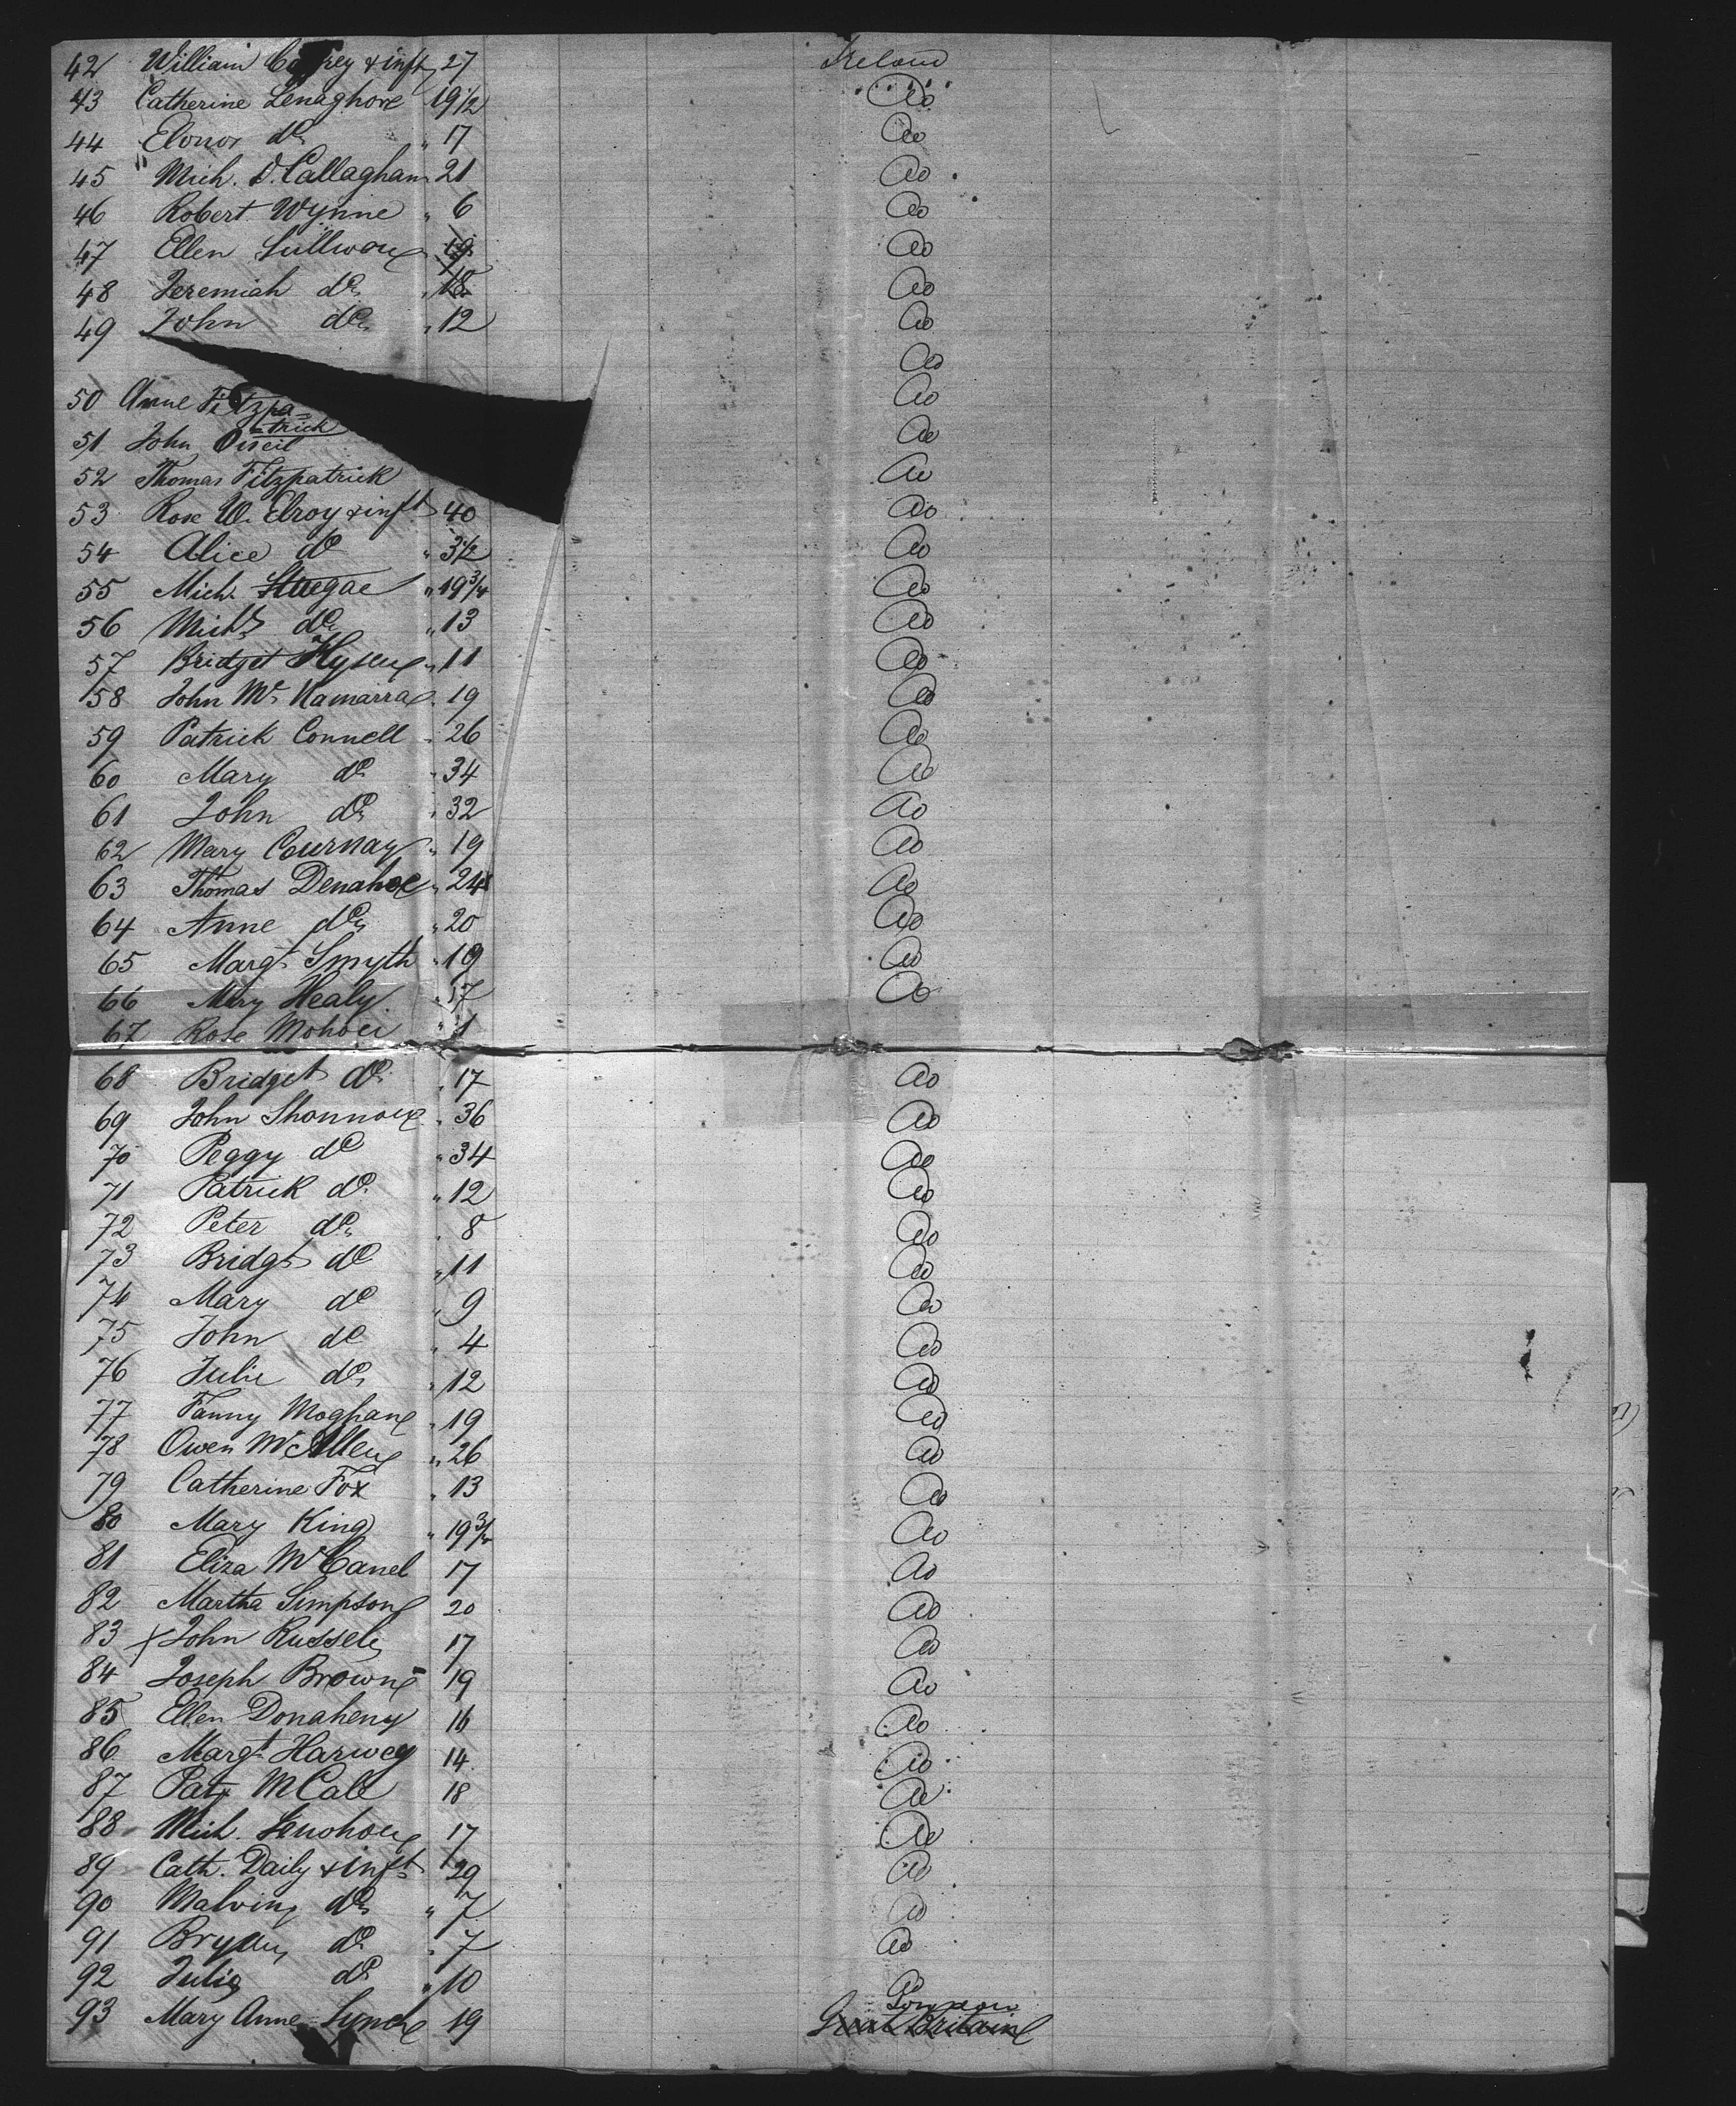 42 William & inft 27 Ireland
43 Catherine Lenaghore 19 1/2 do
44 Elonor do " 17 do
45 Mich. O.Callaghan 21 do
46 Robert Wynne " 6 do
47 Ellen Sullivan do
48 Jeremiah do " 18 do
49 John do " 12 do
do
50 Anne Fitzpa= do
=trick
51 John Oneil do
52 Thomas Fitzpatrick do
53 Rose Mc Elroy & inft 40 do
54 Alice do " 3 1/2 do
55 Mich. " 19 3/4 do
56 Michl do " 13 do
57 Bridget " 11 do
58 John Mc Kamarra " 19 do
59 Patrick Connell " 26 do
60 Mary do " 34 do
61 John do " 32 do
62 Mary Cournay " 19 do
63 Thomas Denahoe " 24 do
64 Anne do " 20 do
65 Margt Smyth " 19 do
66 Mary Healy " 17 do
67 Rose " 1
68 Bridget do " 17 do
69 John Shannon " 36 do
70 Peggy do " 34 do
71 Patrick do " 12 do
72 Peter do " 8 do
73 Bridgt do " 11 do
74 Mary do " 9 do
75 John do " 4 do
76 Julie do " 12 do
77 Fanny Moghan " 19 do
78 Owen McAllen " 26 do
79 Catherine Fox " 13 do
80 Mary King " 19 3/4 do
81 Eliza McCanel 17 do
82 Martha Simpson 20 do
83 x John Russel 17 do
84 Joseph Brown 19 do
85 Ellen Donaheny 16 do
86 Margt Harwey 14 do
87 Pat McCabe 18 do
88 Mich. 17 do
89 Cath. Daily & inft 29 do
90 Malvina do " 7 do
91 Bryan do " 7 do
92 Julia do " 10 do
93 Mary Anne Lynch 19 Great Britain